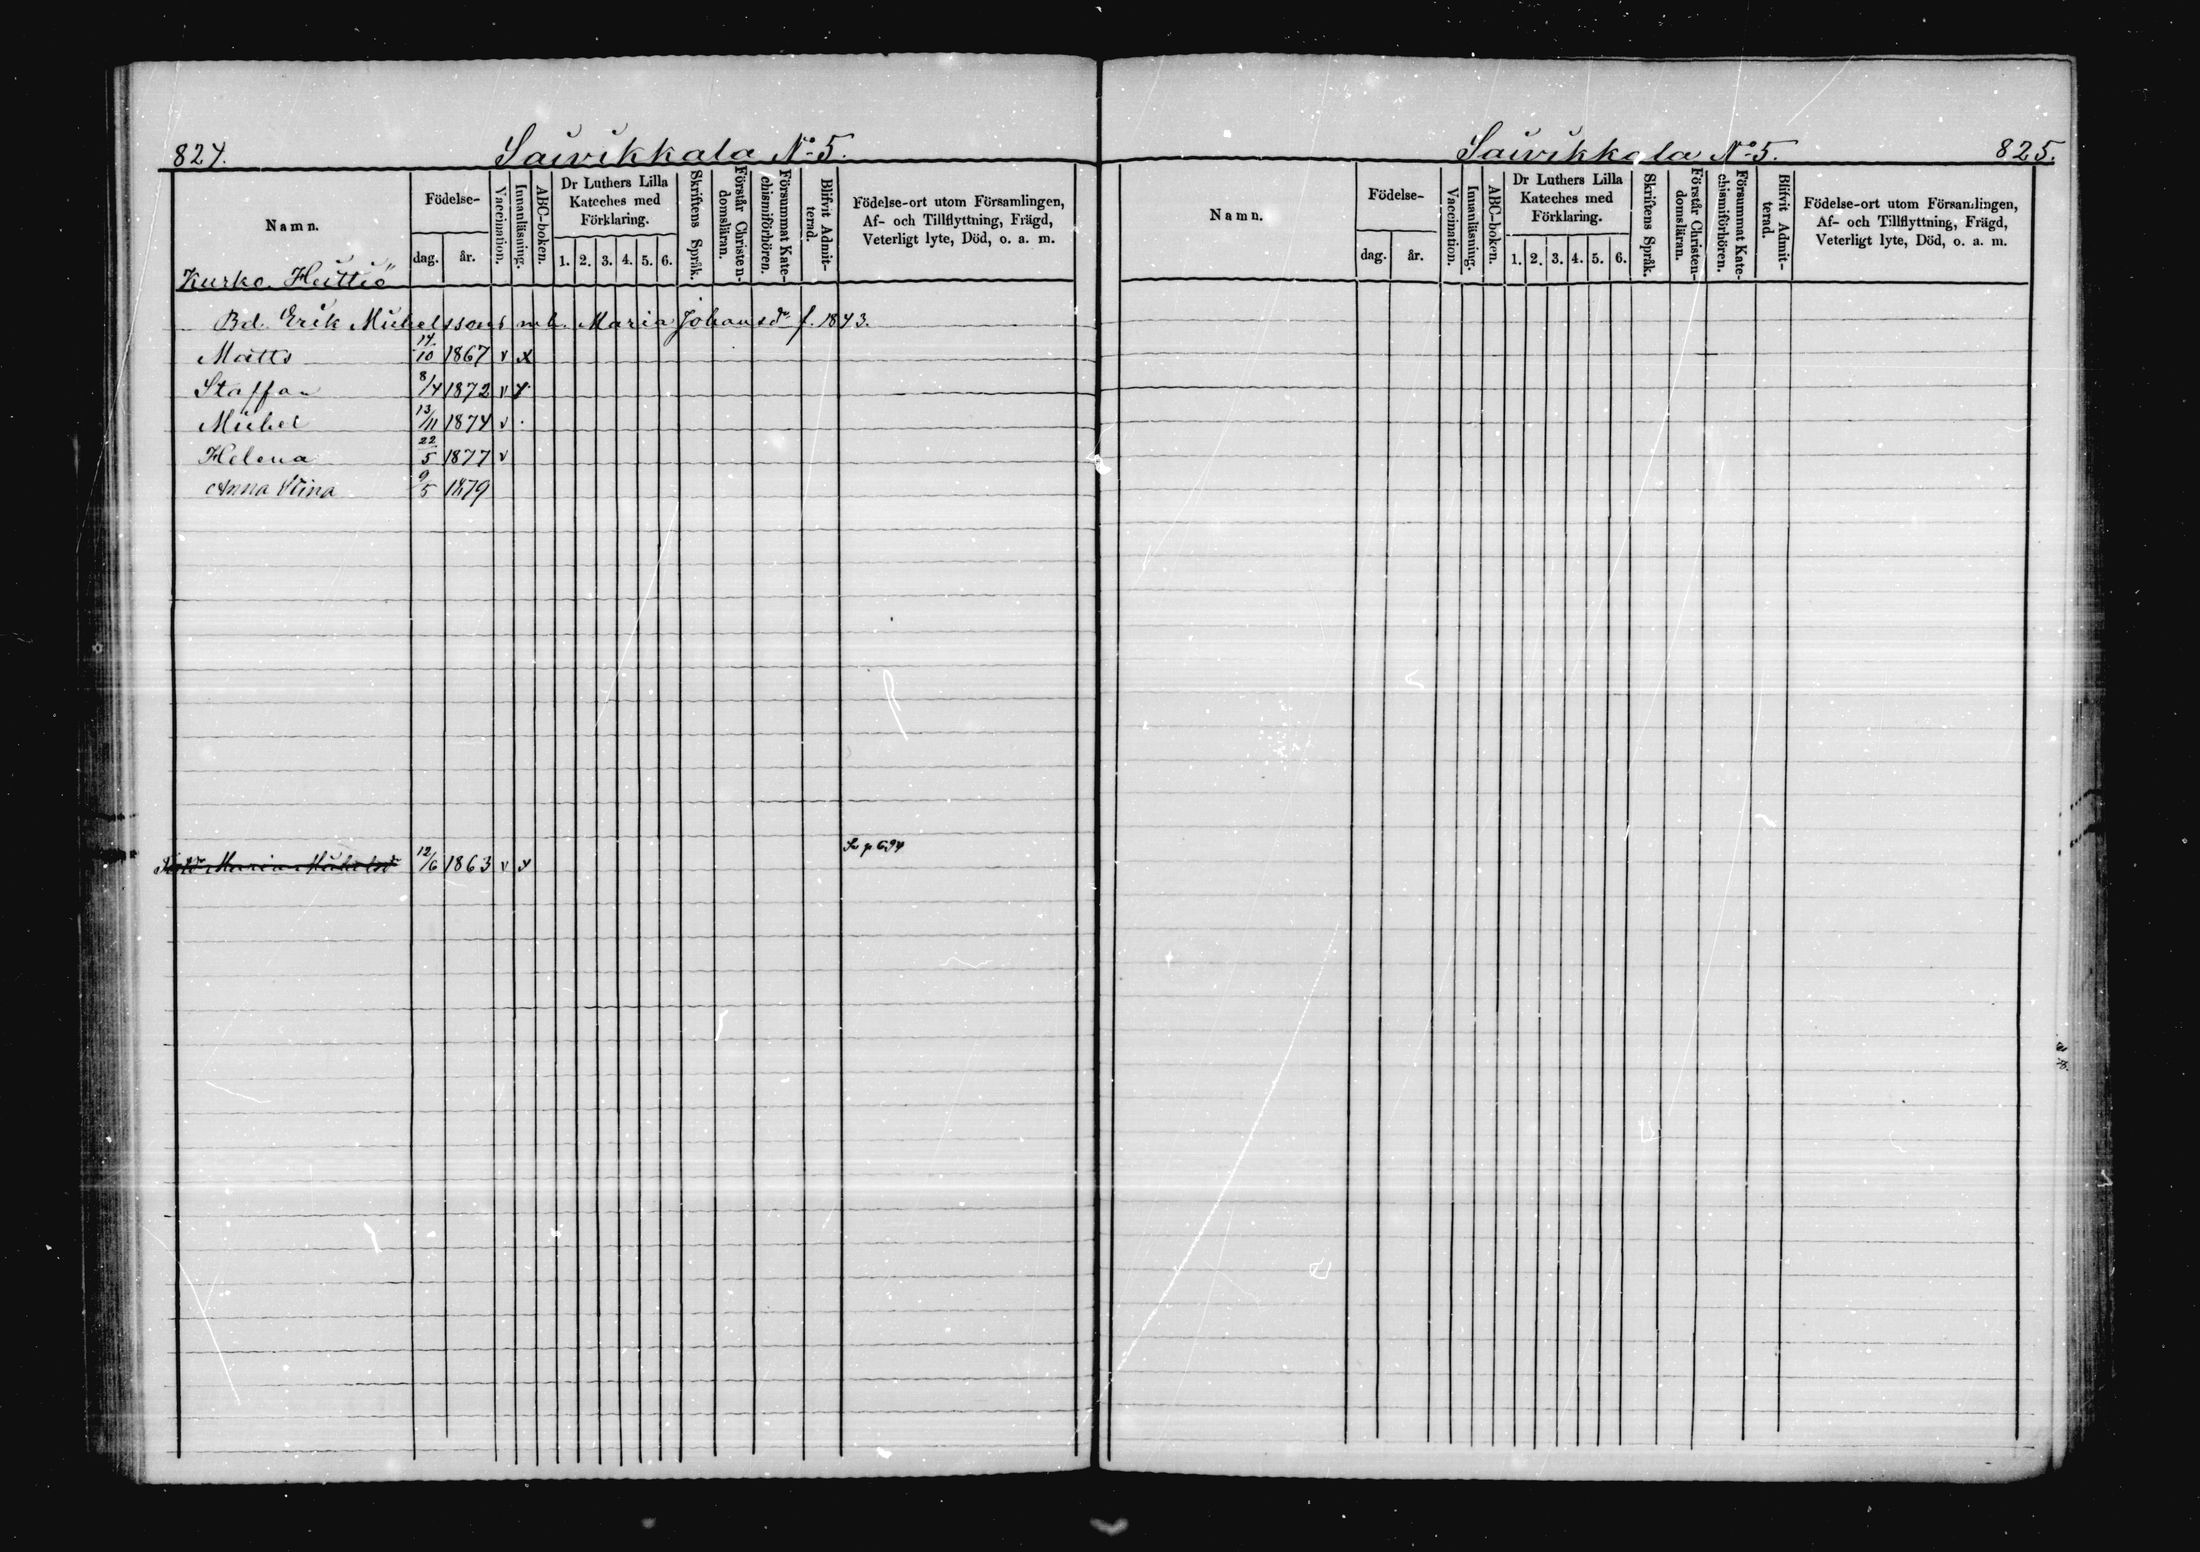 824.
Saivikkala No 5.
Namn.
Födelse-
dag.
år.
Vaccination.
Innanläsning.
ABC-boken.
Dr Luthers Lilla
Kateches med
Förklaring.
1. 2. 3. 4. 5. 6.
Skriftens Språk.
Förstår Christen-
domsläran.
Försummat Kate-
chismiförhören.
Blifvit Admit-
terad.
Födelse-ort utom Församlingen,
Af- och Tillflyttning, Frägd,
Veterligt lyte, Död, o. a. m.
Kurko Heittiö
Bd. Erik Michelssons m b. Maria Johansdr f. 1843.
Matts 14/10 1867 v x
Staffan 8/4 1872 v x
Michel 13/11 1874 v .
Helena 22/5 1877 v
Anna Stina 9/5 1879
Se p 694
Maria Michelsd 12/6 1863 v x
Saivikkala No 5.
825.
Namn.
Födelse-
dag.
år.
Vaccination.
Innanläsning.
ABC-boken.
Dr Luthers Lilla
Kateches med
Förklaring.
1. 2. 3. 4. 5. 6.
Skriftens Språk.
Förstår Christen-
domsläran.
Försummat Kate-
chismiförhören.
Blifvit Admit-
terad.
Födelse-ort utom Församlingen,
Af- och Tillflyttning, Frägd,
Veterligt lyte, Död, o. a. m.